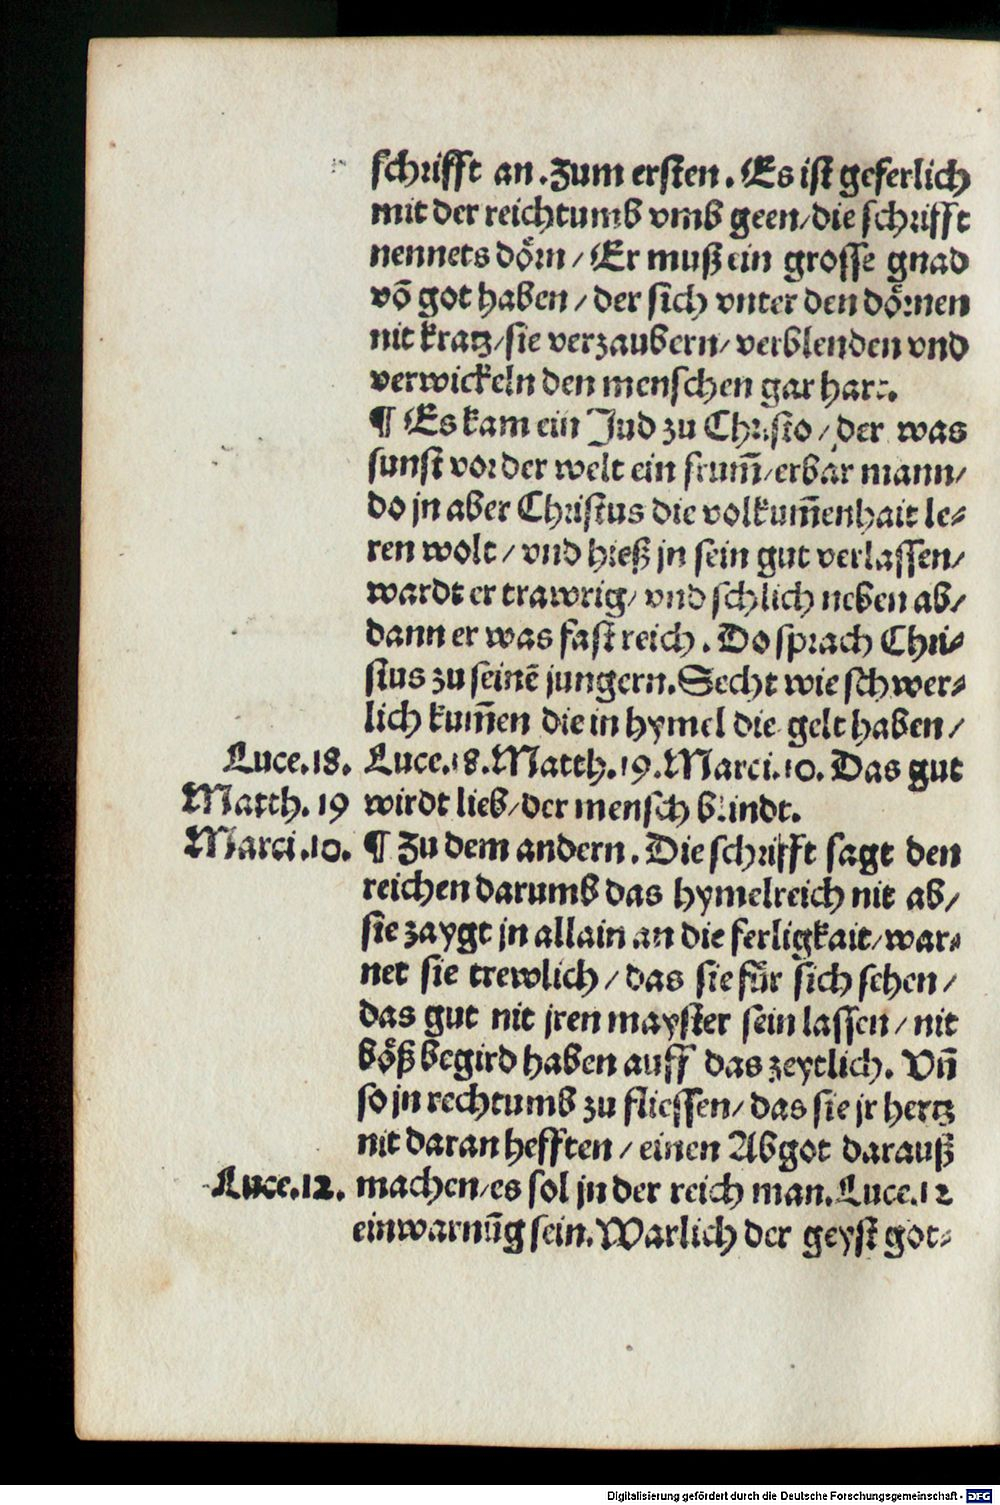 schrifft an. Zum ersten. Es ist geferlich
mit der reichtumb vmb geen/die schrifft
nennets dörn/ Er muß ein grosse gnad
võ got haben/ der sich vnter den dörnen
nit kratz/sie verzaubern/ verblenden vnd
verwickeln den menschen gar hart.
¶ Es kam ein Jud zu Christo/ der was
sunst vor der welt ein frum̃/erbar mann/
do jn aber Christus die volkum̃enhait le-
ren wolt/ vnd hieß jn sein gut verlassen/
wardt er trawrig/ vnd schlich neben ab/
dann er was fast reich. Do sprach Chri-
stus zu seinẽ jungern. Secht wie schwer-
lich kum̃en die in hymel die gelt haben/
Luce.18. Luce.18. Matth.19. Marci.10. Das gut
Matth. 19 wirdt lieb/der mensch blindt.
Marci.10. ¶ Zu dem andern. Die schrifft sagt den
reichen darumb das hymelreich nit ab/
sie zaygt jn allain an die ferligkait/war-
net sie trewlich/ das sie für sich sehen/
das gut nit jren mayster sein lassen/ nit
böß begird haben auff das zeytlich. Vñ
so jn rechtumb zu fliessen/ das sie jr hertz
nit daran hefften/ einen Abgot darauß
Luce.12. machen/es sol jn der reich man. Luce.12
ein warnũg sein. Warlich der geyst got-
Digitalisierung gefördert durch die Deutsche Forschungsgemeinschaft - DFG